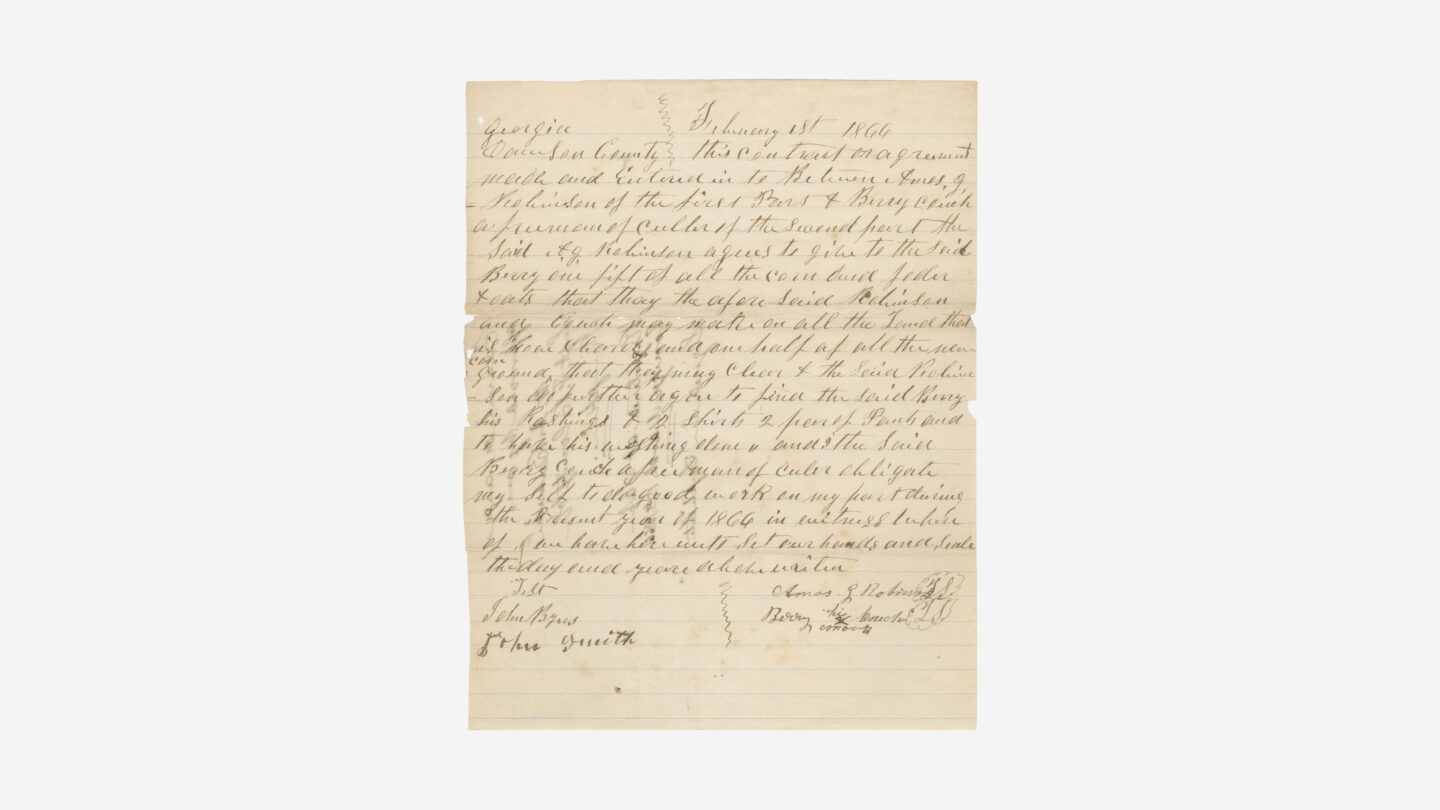 Georgia February 1st 1866
Dawson County this contract or agreement
made and Entered in to Between Amos g
=Robinson of the first Part & Berry couch
a freeman of culler of the second part the
Said A g Robinson agrees to give to the Said
Berry one fift of all the corn and foder
& oats that thay the afore Said Robinson
and Couch may make on all the Land that
is now and one half of all the new
corn
ground, that they may clear & the Said Robin
=son do further agree to find the said Berry
his Rashings & 2 Shirts 2 pare of Pants and
to have his washing done " and I the Said
Berry Couch a freeman of culer obligate
my Self to do good work on my part during
the Present year of 1866 in witness where
of we have here unto Set our hands and Seals
the day and yeare above writen
Test Amos g Robinson LS
John Byus Berry his X mark Couch LS
John Smith